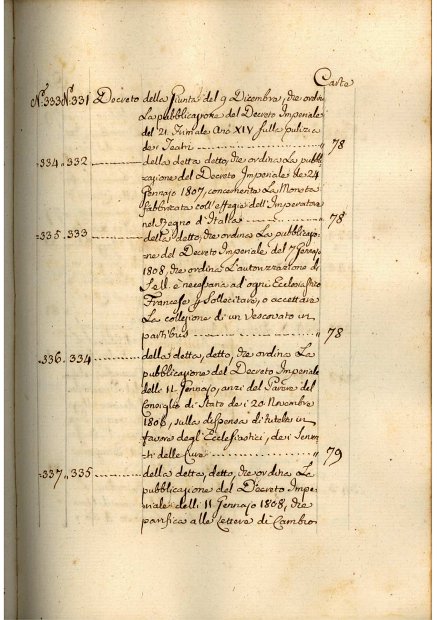 Carte
N.º 333 N.º 331 Decreto della Giunta del 9 Dicembre, che ordina
La pubblicazione del Decreto Imperiale
del 21 Frimale Año XIV sulla pulizia
dei Teatri 78
334 332 della detta detto, che ordina La pubbli
cazione del Decreto Imperiale de 24
Gennajo 1807, concernente La Moneta
fabbricata coll'effigie dell'Imperatore
nel Regno d'Italia 78
335 333 della detto, che ordina La pubblicazio
ne del Decreto Imperiale del 7 Gennajo
1808, che ordina L'autorizzazione di
S. ell. è necessaria ad ogni Ecclesiastico
Francese p. Sollecitare, o accettare
La collezione di un Vescovato in
partibus 78
336 334 della detta, detto, che ordina La
pubblicazione del Decreto Imperiale
delli 11 Gennajo, anzi del Parere del
Consiglio di Stato dei 20 Novembre
1806, sulla dispensa di tutela in
favore degl'Ecclesiastici, dei Serven
ti delle Cure 79
337 335 della detta, detto, che ordina La
pubblicazione del Decreto Impe
riale delli 11 Gennajo 1808, che
parifica alle Lettere di Cambio